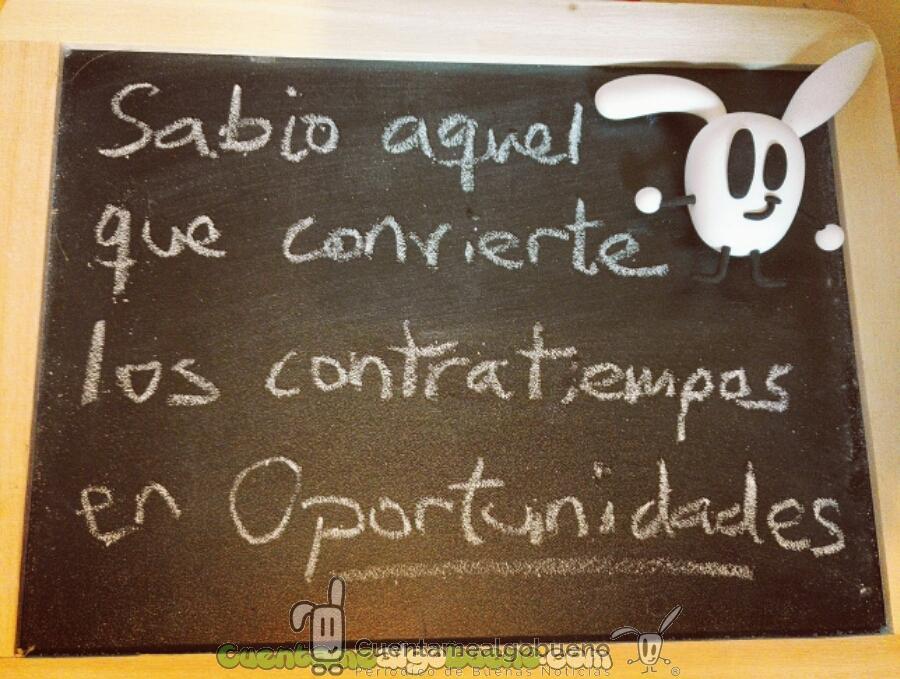 Sabio aquel
que convierte
los contratiempos
en Oportunidades
Cuentamealgobueno
Cuentamealgobueno.com
Periódico de Buenas Noticias ®